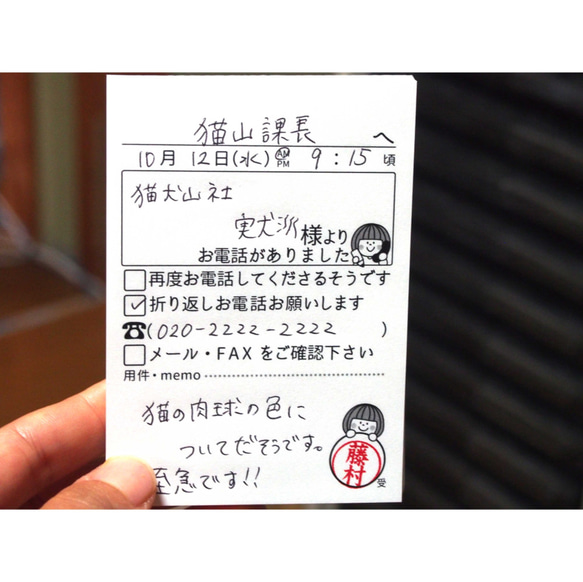 猫山課長 へ
10月 12日(水) AM PM 9:15 頃
猫犬山社
実犬派 様より
お電話がありました
再度お電話してくださるそうです
折り返しお電話お願いします
(020-2222-2222 )
メール・FAXをご確認下さい
用件・memo
猫の肉球の色に
ついてだそうです。
至急です!!
藤村
受